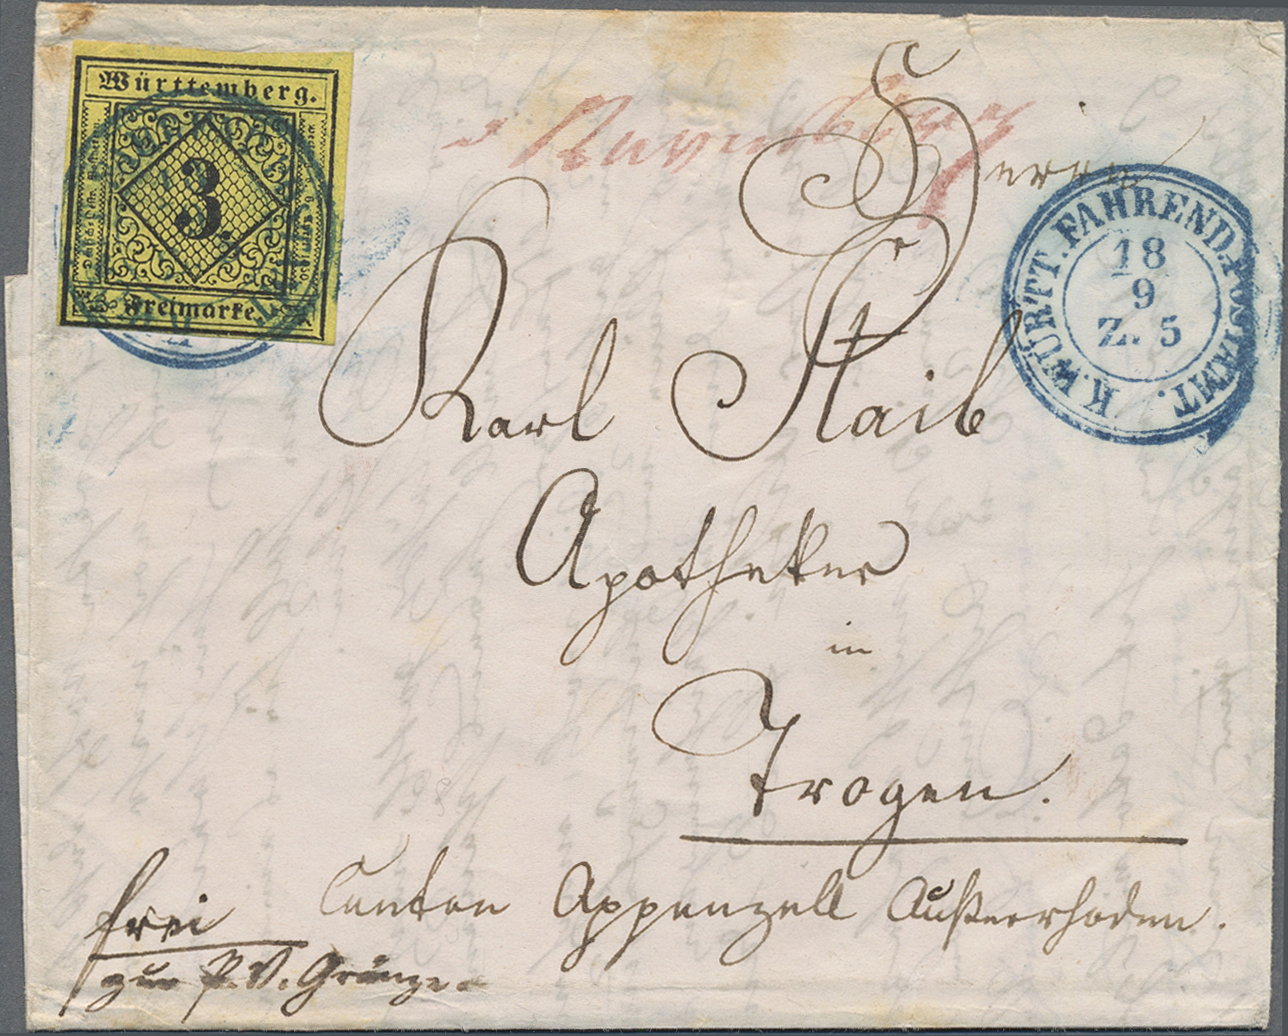 Württemberg.
3.
Freimarke.
Herrn
Karl Staib
Apotheker
in
Trogen.
Canton Appenzell Außerrhoden.
frei
zur P. V. Gränze.
K. WÜRTT. FAHREND. POSTAMT.
18
9
Z. 5